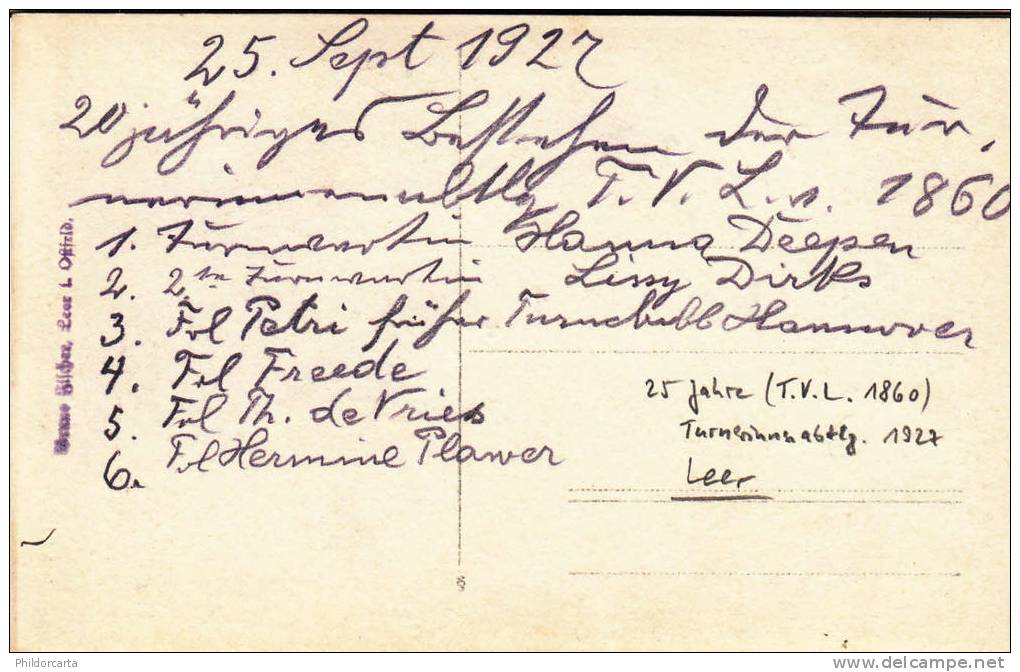 25. Sept 1927
20 jähriges Bestehen der Tur-
nerinnenabtlg T.V.L. v. 1860
1. Turnwartin Hanna Deepen
2. 2te Turnwartin Lissy Dirks
3. Frl Petri früher Turnclubb Hannover
4. Frl Freede
5. Frl Th. de Vries
6. Frl Hermine Plawer
25 Jahre (T.V.L. 1860)
Turnerinnenabtlg. 1927
Leer
Fischer, Leer i. Ostfrld.
Phildorcarta
www.delcampe.net